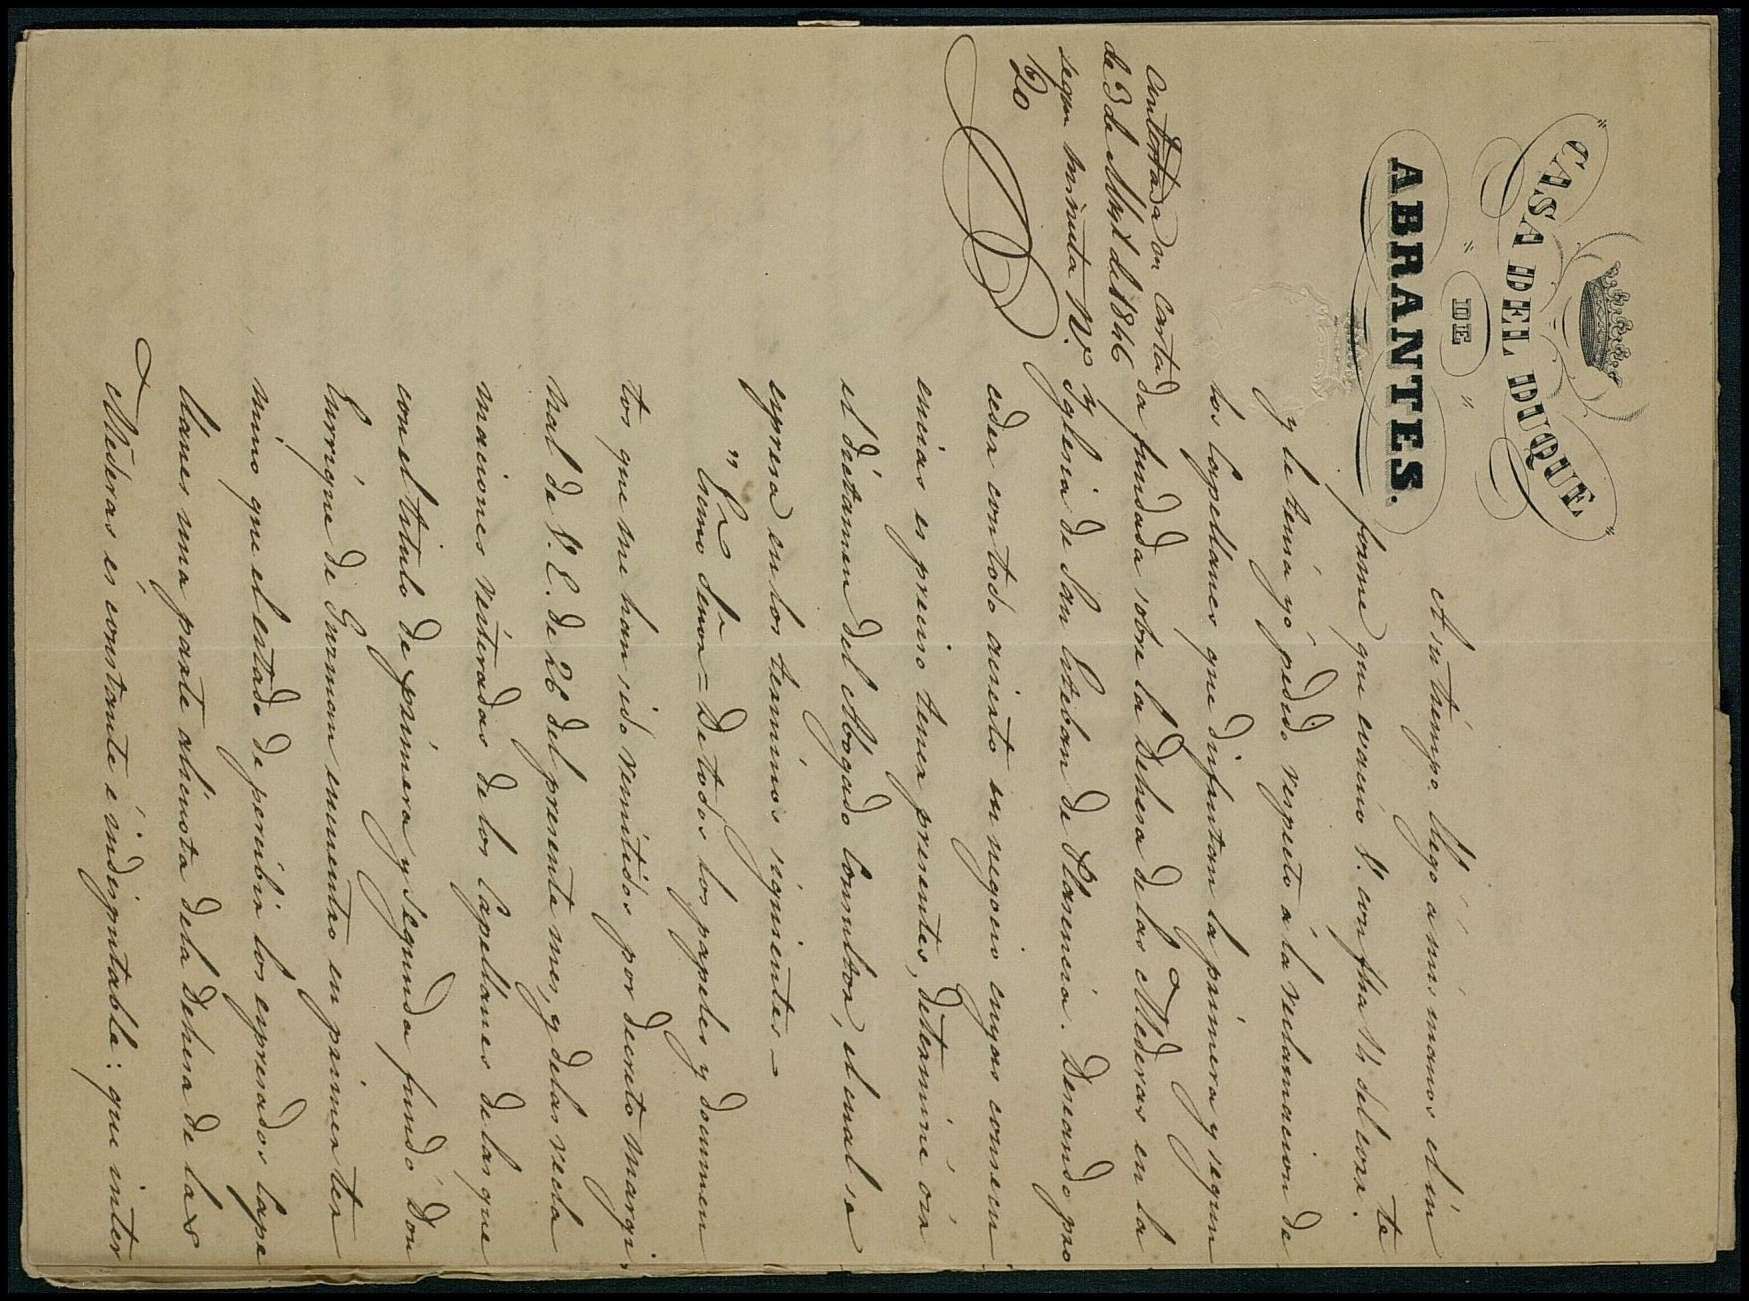 CASA DEL DUQUE
DE
ABRANTES.
Contestada en Carta
de 3 de Mayo de 1846
segun minuta N.º
120
A su tiempo llegó á mis manos el in
forme que evacúo V. con fha 14 del corr.te
y le tenia yó pedido respecto á la reclamacion de
los Capellanes que disfrutan la primera y segun
da fundada sobre la Dehesa de las Mederas en la
Yglesia de San Esteban de Plasencia. Deseando pro
ceder con todo acierto en negocio cuyas consecu
encias es preciso tener presentes, determiné oir
el dictamen del Abogado Consultor, el cual se
espresa en los terminos siguientes =
" Exmo Señor = De todos los papeles y documen
tos que me han sido remitidos por decreto margi
nal de V. E. de 26 del presente mes, y delas recla
maciones reiteradas de los Capellanes de las que
con el titulo de primera y segunda fundó Don
Enrrique de Guzman enumento en primer ter
mino que el estado de percibir los espresados Cape
llanes una parte alicuota dela Dehesa de las
Mederas és constante é indisputable: que inter